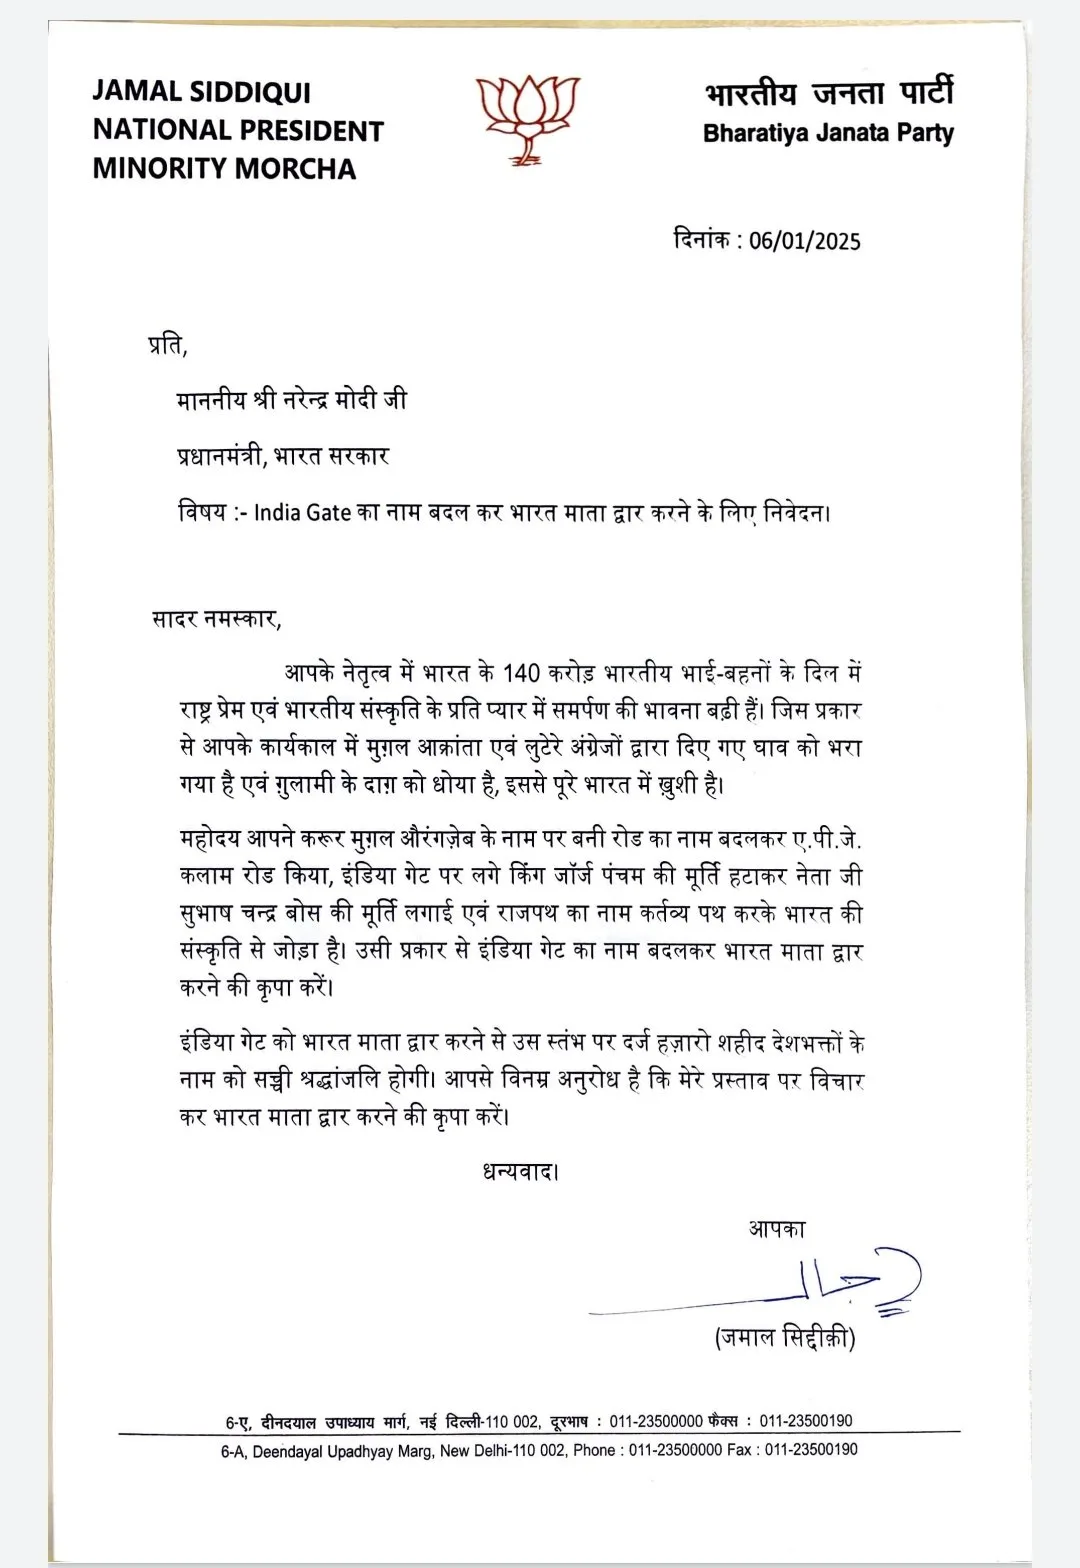 JAMAL SIDDIQUI
NATIONAL PRESIDENT
MINORITY MORCHA
भारतीय जनता पार्टी
Bharatiya Janata Party
दिनांक : 06/01/2025
प्रति,
माननीय श्री नरेन्द्र मोदी जी
प्रधानमंत्री, भारत सरकार
विषय :- India Gate का नाम बदल कर भारत माता द्वार करने के लिए निवेदन।
सादर नमस्कार,
आपके नेतृत्व में भारत के 140 करोड़ भारतीय भाई-बहनों के दिल में
राष्ट्र प्रेम एवं भारतीय संस्कृति के प्रति प्यार में समर्पण की भावना बढ़ी हैं। जिस प्रकार
से आपके कार्यकाल में मुग़ल आक्रांता एवं लुटेरे अंग्रेजों द्वारा दिए गए घाव को भरा
गया है एवं ग़ुलामी के दाग़ को धोया है, इससे पूरे भारत में ख़ुशी है।
महोदय आपने करूर मुग़ल औरंगज़ेब के नाम पर बनी रोड का नाम बदलकर ए.पी.जे.
कलाम रोड किया, इंडिया गेट पर लगे किंग जॉर्ज पंचम की मूर्ति हटाकर नेता जी
सुभाष चन्द्र बोस की मूर्ति लगाई एवं राजपथ का नाम कर्तव्य पथ करके भारत की
संस्कृति से जोड़ा है। उसी प्रकार से इंडिया गेट का नाम बदलकर भारत माता द्वार
करने की कृपा करें।
इंडिया गेट को भारत माता द्वार करने से उस स्तंभ पर दर्ज हज़ारो शहीद देशभक्तों के
नाम को सच्ची श्रद्धांजलि होगी। आपसे विनम्र अनुरोध है कि मेरे प्रस्ताव पर विचार
कर भारत माता द्वार करने की कृपा करें।
धन्यवाद।
आपका
(जमाल सिद्दीक़ी)
6-ए, दीनदयाल उपाध्याय मार्ग, नई दिल्ली-110 002, दूरभाष : 011-23500000 फैक्स : 011-23500190
6-A, Deendayal Upadhyay Marg, New Delhi-110 002, Phone : 011-23500000 Fax : 011-23500190